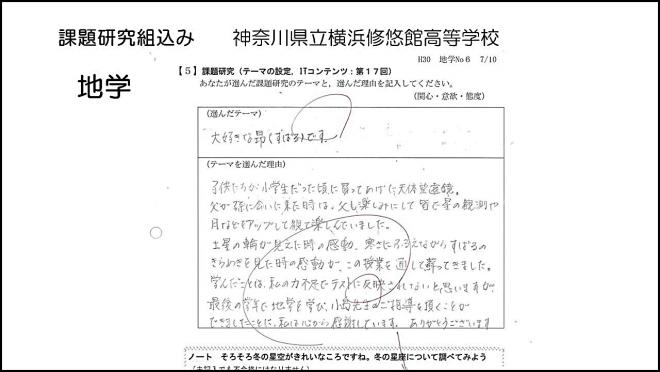 課題研究組込み　　神奈川県立横浜修悠館高等学校
地学
H30　地学No6　7/10
【5】課題研究（テーマの設定，ITコンテンツ：第17回）
あなたが選んだ課題研究のテーマと，選んだ理由を記入してください。
（関心・意欲・態度）
（選んだテーマ）
大好きな昴（すばる）です。
（テーマを選んだ理由）
子供たちが小学生だった頃に買ってあげた天体望遠鏡。
父が孫に会いに来た時は、父も楽しみにして皆で星の観測や
月などをアップして観て楽しんでいました。
土星の輪が見えた時の感動、寒さにふるえながらすばるの
きらめきを見た時の感動が、この授業を通して蘇ってきました。
学んだことは、私の力不足でテストに反映されないと思いますが、
最後の学年で地学を学び、小島先生のご指導を頂くことが
できましたことに、私は心から感謝しています。ありがとうございます
ノート　そろそろ冬の星空がきれいなころですね。冬の星座について調べてみよう
（未記入でも不合格にはなりません）